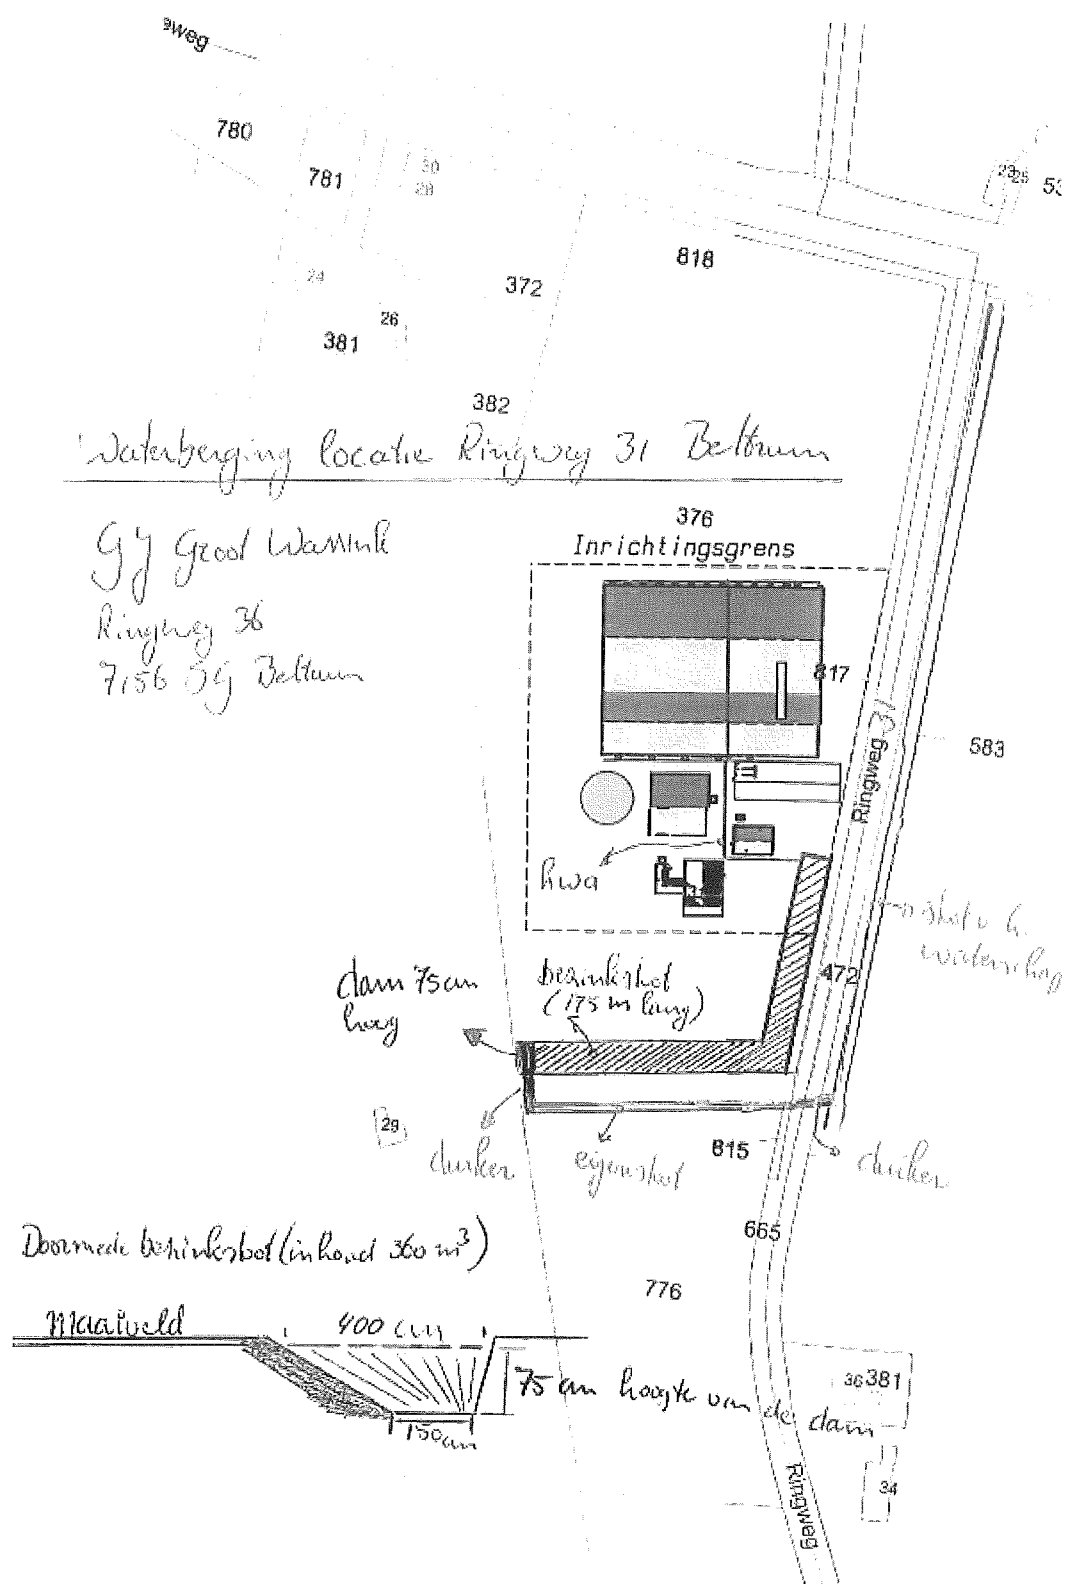 eweg
780
781
30
28
23
25
53
818
24
372
26
381
382
Waterberging locatie Ringweg 31 Beltrum
376
Inrichtingsgrens
GJ Groot Wassink
Ringweg 36
7156 SG Beltrum
817
Ringweg 31
583
hwa
31
sloot v. h.
waterschap
dam 75 cm
hoog
bezinksloot
(175 m lang)
472
29
duiker
eigen sloot
815
duiker
Doorsnede bezinksloot (inhoud 360 m³)
665
776
Maaiveld
400 cm
75 cm hoogte van de dam
150 cm
36
381
34
Ringweg